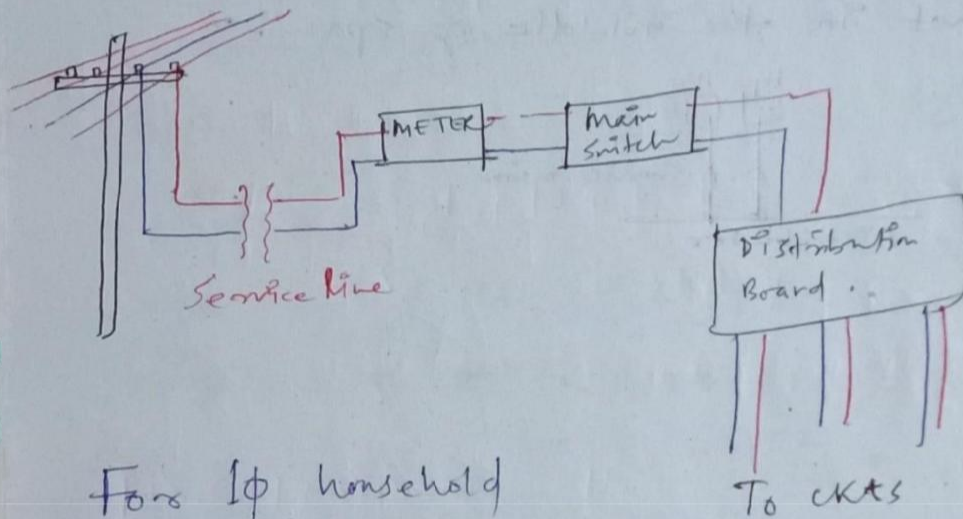 METER
Main
Switch
Service line
Distribution
Board ..
For 1ϕ household
To CKtS